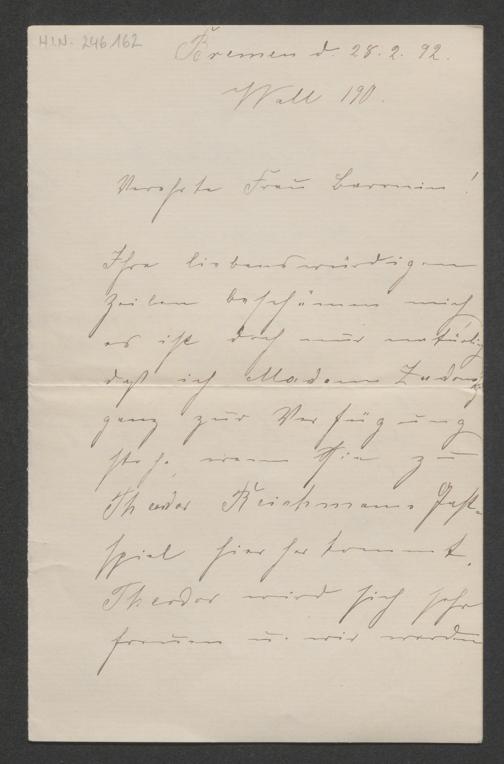 H.I.N. 246.162
Bremen d. 28. 2. 92.
Wall 190.
Verehrte Frau Baronin!
Ihre liebenswürdigen
Zeilen beschämen mich
es ist doch nur natürlich
daß ich Madame
ganz zur Verfügung
stehe, wenn Sie zu
Theodor Reichmanns Gast-
spiel hierher kommt.
Theodor wird sich sehr
freuen u. wir werden